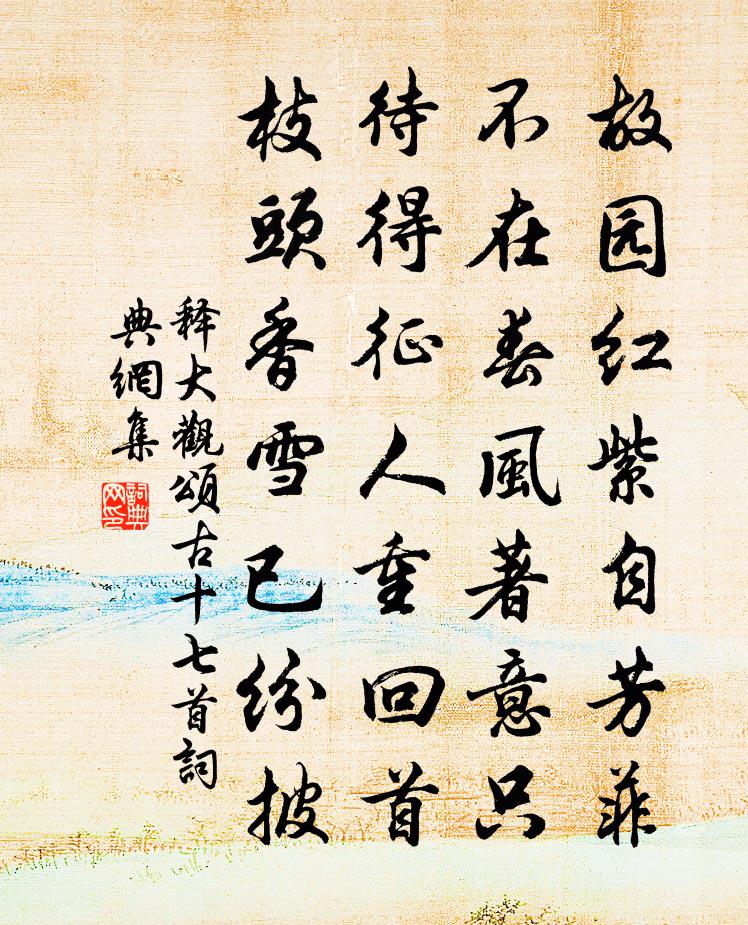 故园红紫自芳菲
不在春風著意只
待得征人重回首
枝頭香雪已纷披
释大觀頌古十七首詞
典網集
詞典网印